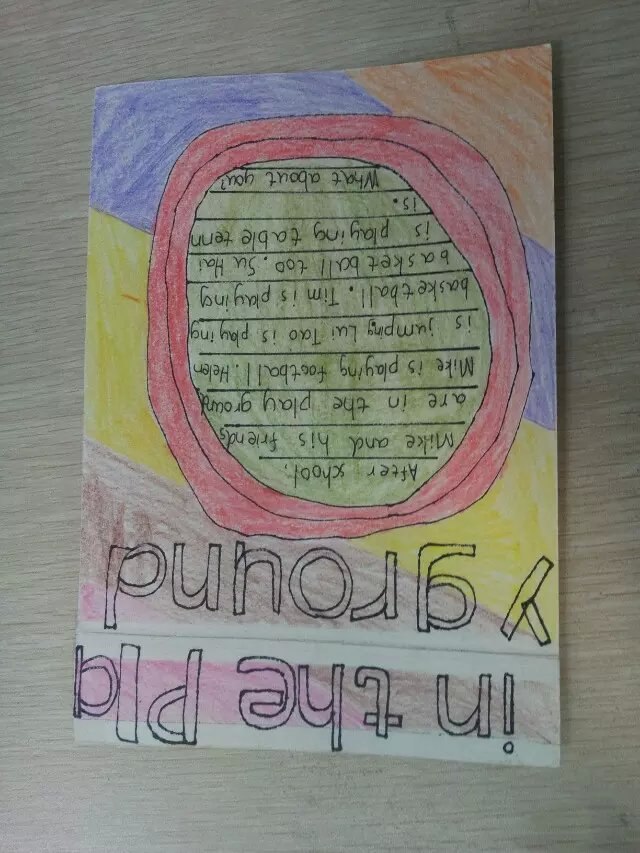 in the Pla
y ground
After school,
Mike and his friends
are in the play ground
Mike is playing football. Helen
is jumping Lui Tao is playing
basketball. Tim is playing
basketball too. Su Hai
is playing table tenn
is.
What about you?